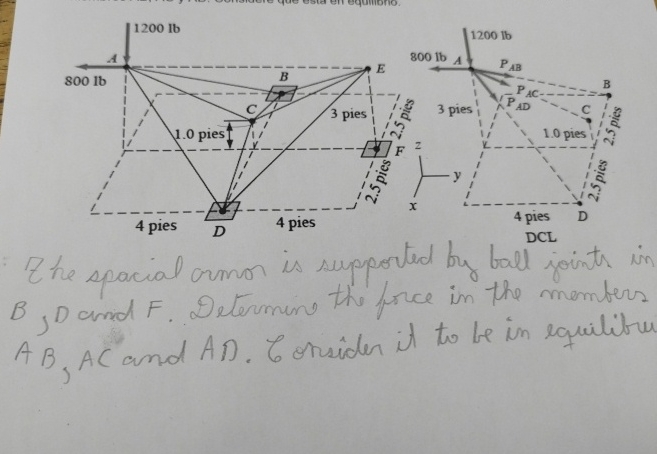 Considere que esta en equilibrio.
1200 lb
A
800 lb
E
B
C
3 pies
2.5 pies
1.0 pies
F
2.5 pies
4 pies
D
4 pies
1200 lb
800 lb A
P_AB
P_AC
P_AD
B
C
3 pies
1.0 pies
2.5 pies
2.5 pies
z
y
x
4 pies
D
DCL
The spacial armor is supported by ball joints in
B, D and F. Determine the force in the members
AB, AC and AD. Consider it to be in equilibriu